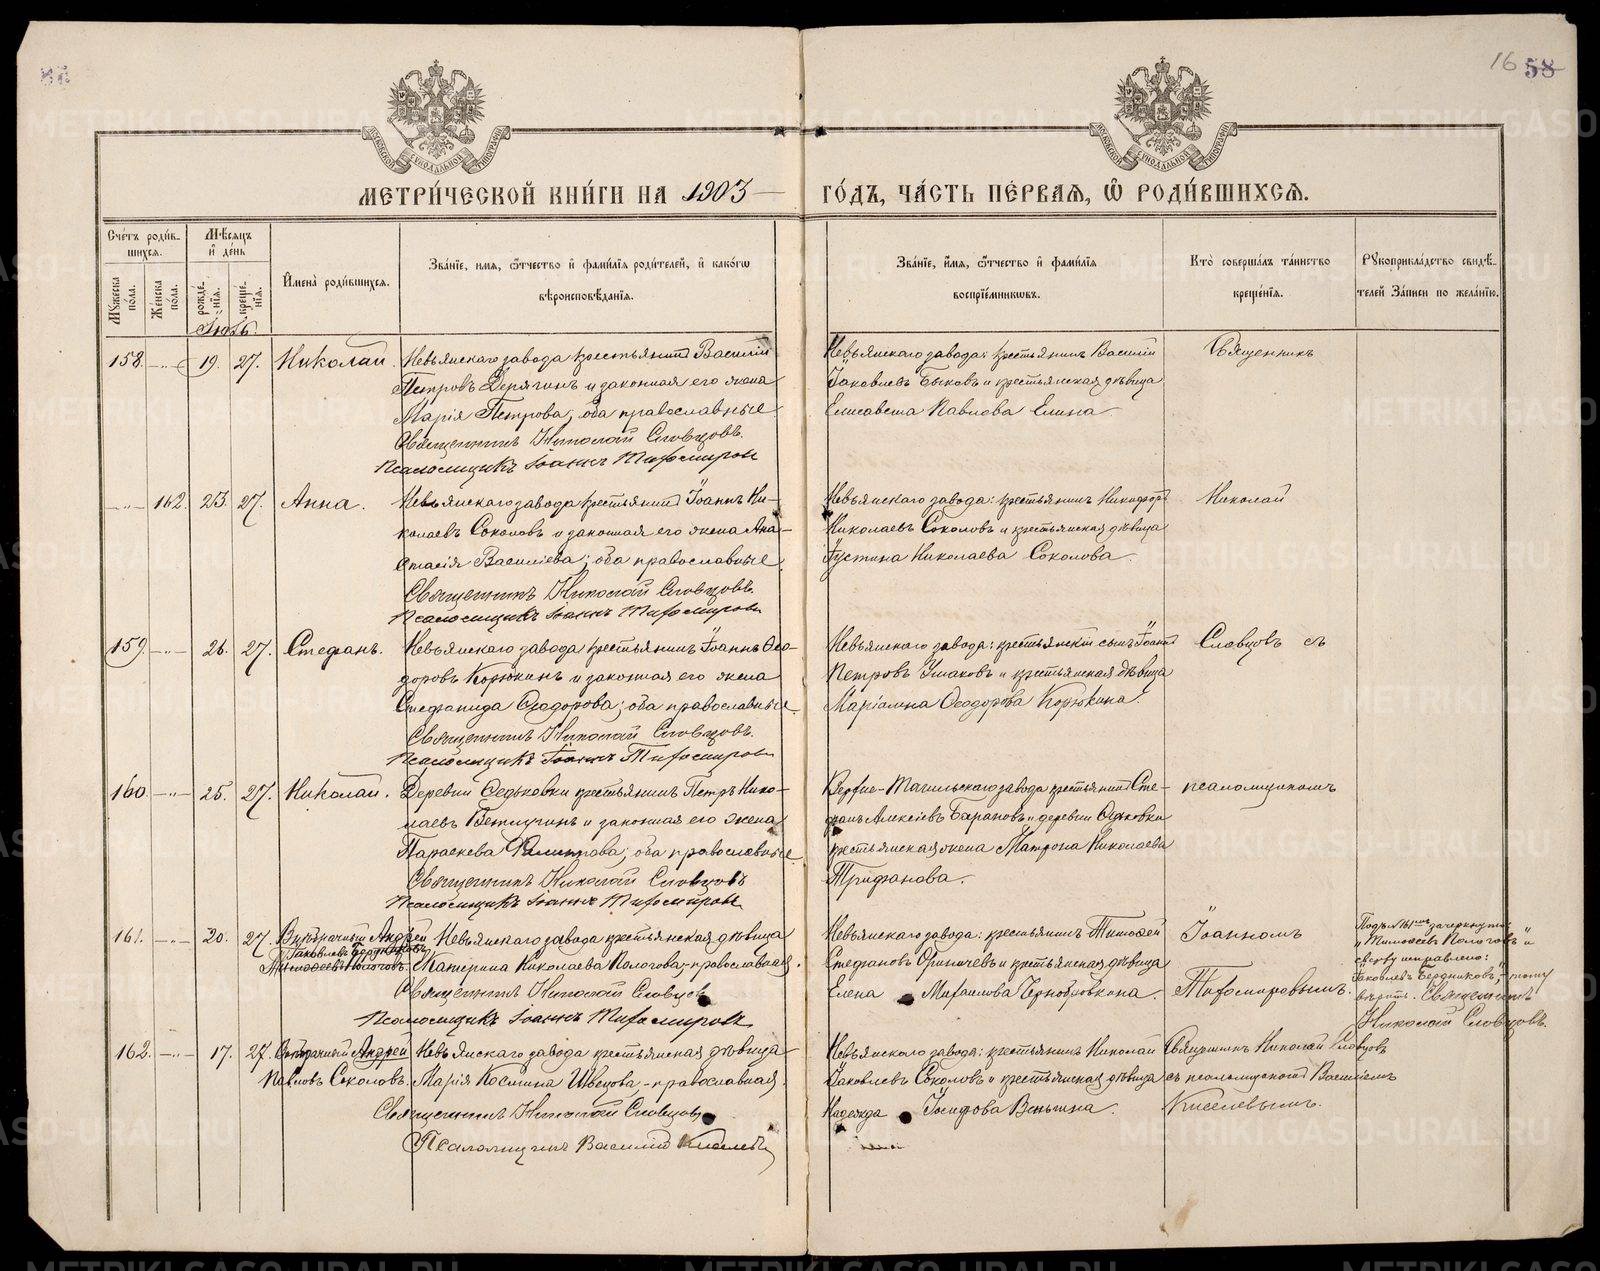 16 58
МОСКОВСКОЙ СѴНОДАЛЬНОЙ ТИПОГРАФІИ
МОСКОВСКОЙ СѴНОДАЛЬНОЙ ТИПОГРАФІИ
МЕТРИ́ЧЕСКОЙ КНИ́ГИ НА 1903 ГО́ДЪ, ЧА́СТЬ ПЕ́РВАЯ, Ѡ РОДИ́ВШИХСЯ.
Сче́тъ роди́в-
шихся.
Му́жеска по́ла.
Же́нска по́ла.
Мѣ́сяцъ
и де́нь
рожде́-нія.
креще́-нія.
Имена̀ роди́вшихся.
Зва́ніе, имя, о́тчество и фами́лія роди́телей, и како́гѡ
вѣроисповѣ́данія.
Зва́ніе, и́мя, о́тчество и фами́лія
воспріе́мниковъ.
Кто̀ соверша́лъ та́инство
креще́нія.
Рукоприкла́дство свидѣ́-
телей за́писи по жела́нію.
Іюль.
158. —„— 19. 27. Николай. Невьянскаго завода крестьянинъ Василій
Петровъ Дерягинъ и законная его жена
Марія Петрова, оба православные
Священникъ Николай Словцовъ.
Псаломщикъ Іоаннъ Тихомировъ
Невьянскаго завода: крестьянинъ Василій
Іаковлевъ Быковъ и крестьянская дѣвица
Елисавета Павлова Елина
Священникъ
—„— 162. 23. 27. Анна. Невьянскаго завода крестьянинъ Іоаннъ Ни-
колаевъ Соколовъ и законная его жена Ана-
стасія Василіева; оба православные.
Священникъ Николай Словцовъ.
Псаломщикъ Іоаннъ Тихомировъ
Невьянскаго завода: крестьянинъ Никифоръ
Николаевъ Соколовъ и крестьянская дѣвица
Іустина Николаева Соколова.
Николай
159. —„— 26. 27. Стефанъ. Невьянскаго завода крестьянинъ Іоаннъ Ѳео-
доровъ Корюкинъ и законная его жена
Стефанида Ѳеодорова; оба православные.
Священникъ Николай Словцовъ.
Псаломщикъ Іоаннъ Тихомировъ
Невьянскаго завода: крестьянскій сынъ Іоаннъ
Петровъ Ушаковъ и крестьянская дѣвица
Маріамна Ѳеодорова Корюкина.
Словцовъ съ
160. —„— 25. 27. Николай. Деревни Ѳедьковки крестьянинъ Петръ Нико-
лаевъ Ветлугинъ и законная его жена
Параскева оба православные
Священникъ Николай Словцовъ
Псаломщикъ Іоаннъ Тихомировъ
Верхне-Тагильскаго завода крестьянинъ Сте-
фанъ Алексіевъ Барановъ и деревни Ѳедьковки
крестьянская жена Матрона Николаева
Трифанова.
псаломщикомъ
161. —„— 20. 27. Внѣбрачный Андрей Невьянскаго завода крестьянская дѣвица
Іаковлевъ Бердниковъ
Тимоѳеевъ Пологовъ. Екатерина Николаева Пологова, православная.
Священникъ Николай Словцовъ
Псаломщикъ Іоаннъ Тихомировъ
Невьянскаго завода: крестьянинъ Тимоѳей
Стефановъ и крестьянская дѣвица
Елена Михаилова Чернобровкина.
Іоанномъ
Тихомировымъ.
Подъ № 161мъ зачеркнутое
„Тимоѳеевъ Пологовъ" и
сверху исправлено:
„Іаковлевъ Бердниковъ," — тому
вѣрить. Священникъ
Николай Словцовъ.
162. —„— 17. 27. Внѣбрачный Андрей Невьянскаго завода крестьянская дѣвица
Павловъ Соколовъ. Марія Косьмина Швецова — православная.
Священникъ Николай Словцовъ
Псаломщикъ Василій Киселевъ
Невьянскаго завода: крестьянинъ Николай
Іаковлевъ Соколовъ и крестьянская дѣвица
Надежда Іосифова Венгина.
Священникъ Николай Словцовъ
съ псаломщикомъ Василіемъ
Киселевымъ.
METRIKI.GASO-URAL.RU